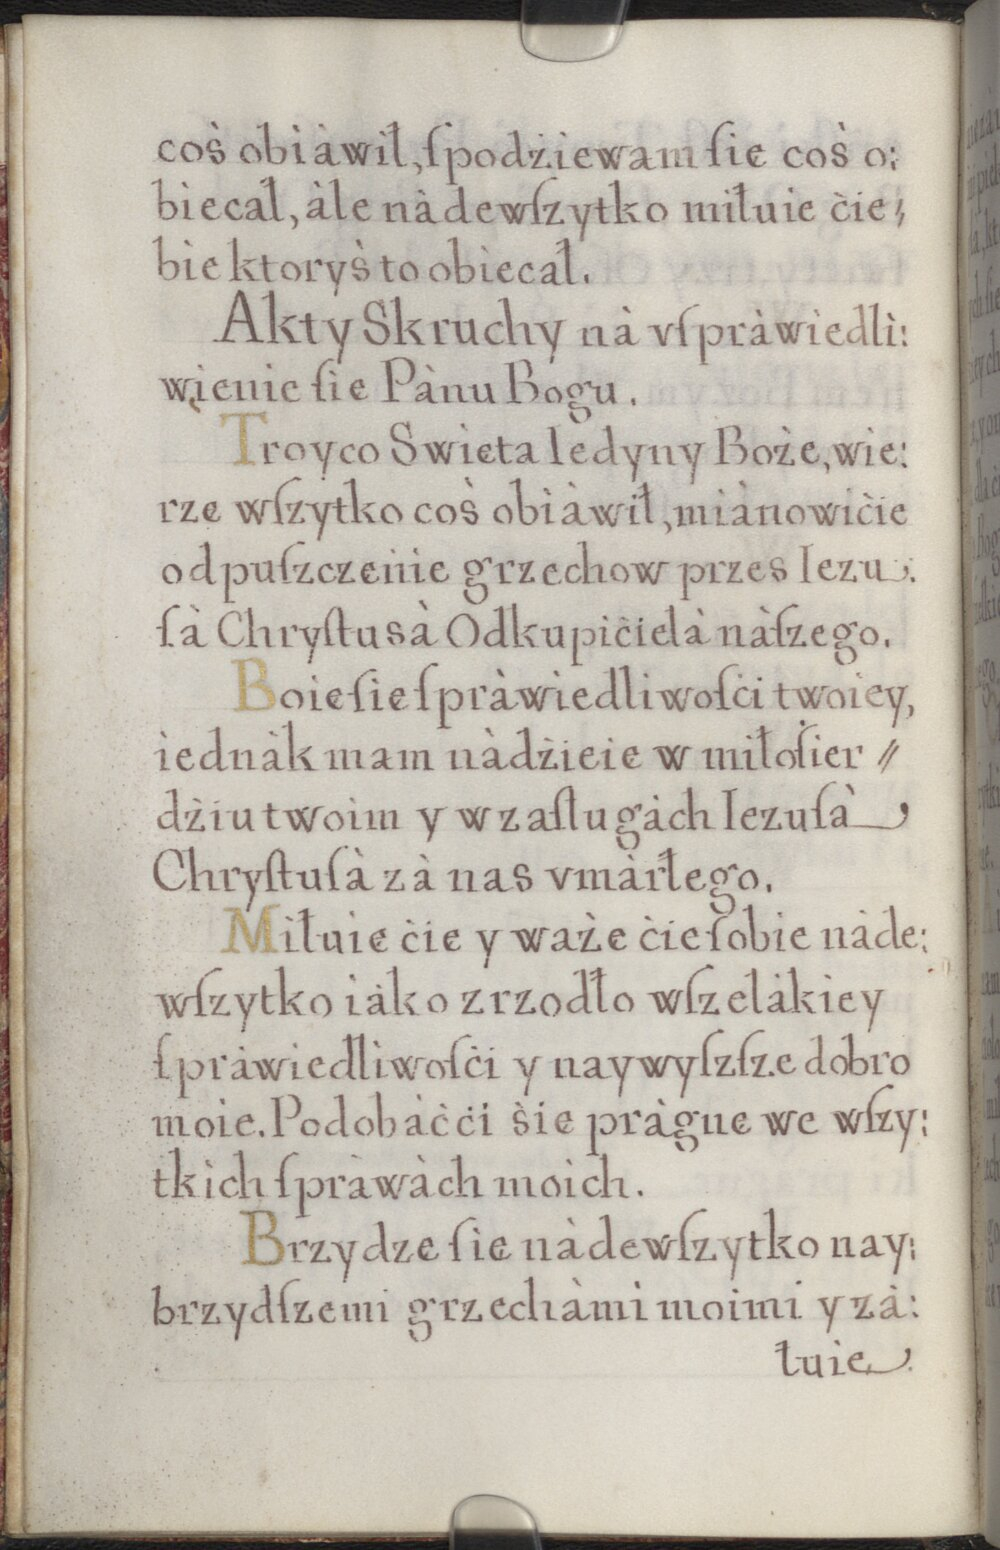 coṡ obiàwił, ſpodżiewam ſie coṡ o:
biecał, àle nàdewſzytko miłuie ċie⸗
bie ktoryṡ to obiecał.
Akty Skruchy nà vſpràwiedli:
wienie ſie Pànu Bogu.
Troyco Swieta Iedyny Boże, wie:
rze wſzytko coṡ obiàwił, miànowiċie
odpuſzczenie grzechow przes Iezu:
ſà Chryſtusà Odkupiċielà nàſzego.
Boie ſie ſpràwiedliwoſċi twoiey,
iednàk mam nàdżieie w miłoſier⸗
dżiu twoim y w zaſlugàch Iezuſà
Chryſtuſà zà nas vmàrłego.
Miłuie ċie y waże ċie ſobie nàde:
wſzytko iàko zrzodło wſzelàkiey
ſpràwiedliwoſċi y naywyſzſze dobro
moie. Podobàċ ċi ṡie pràgne we wſzy:
tkich ſpràwàch moich.
Brzydze ſie nàdewſzytko nay:
brzydſzemi grzechàmi moimi y zà:
łuie